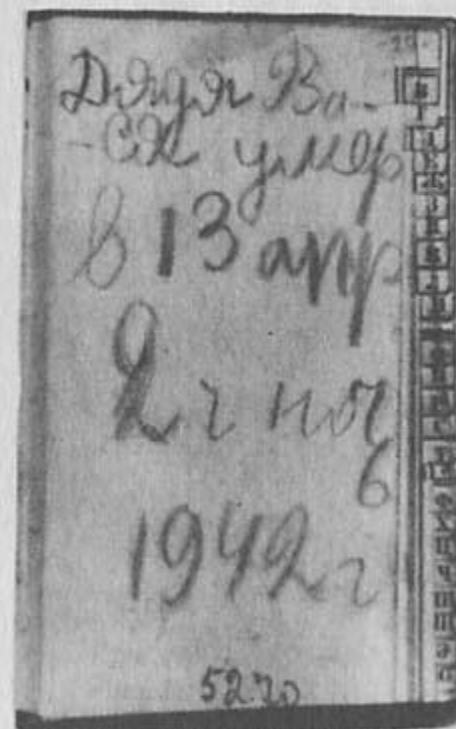 Дядя Ва-
-ся умер
в 13 апр
2 ч ноч
ь
1942 г
5220